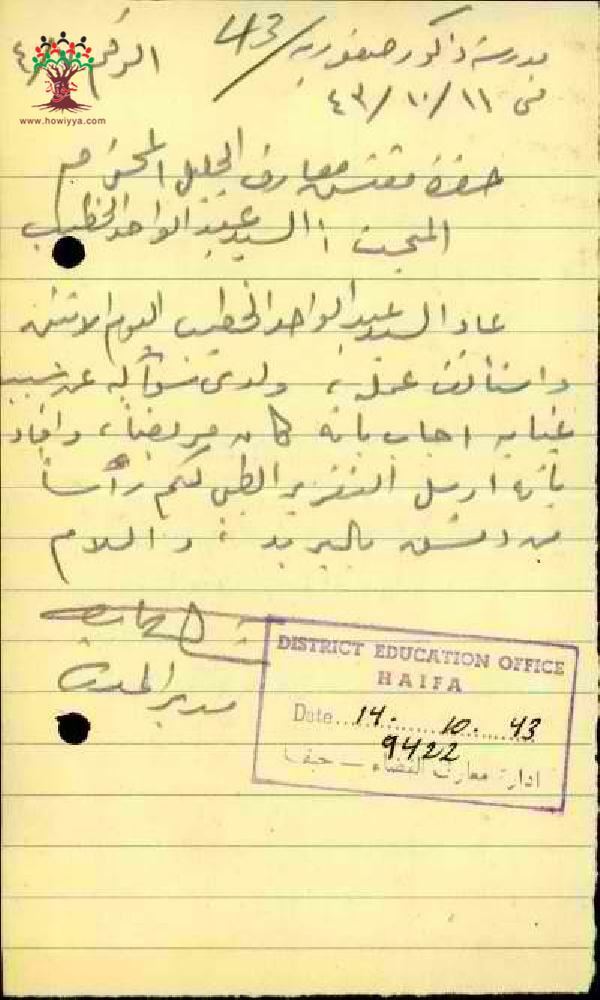 مدرسة ذكور صفورية
43/
الرقم
www.howiyya.com
في ١١/١٠/٤٣
حضرة مفتش معارف الجليل المحترم
المبحث : السيد عبد الواحد الخطيب
عاد السيد عبد الواحد الخطيب اليوم الاثنين
واستأنف عمله، ولدى سؤاله عن سبب
غيابه اجاب بانه كان مريضا، وافاد
بانه ارسل التقرير الطبي لكم رأسا
من دمشق بالبريد ، والسلام
مدير المدرسة
DISTRICT EDUCATION OFFICE
HAIFA
Date 14. 10. 43
9422
ادارة معارف القضاء — حيفا